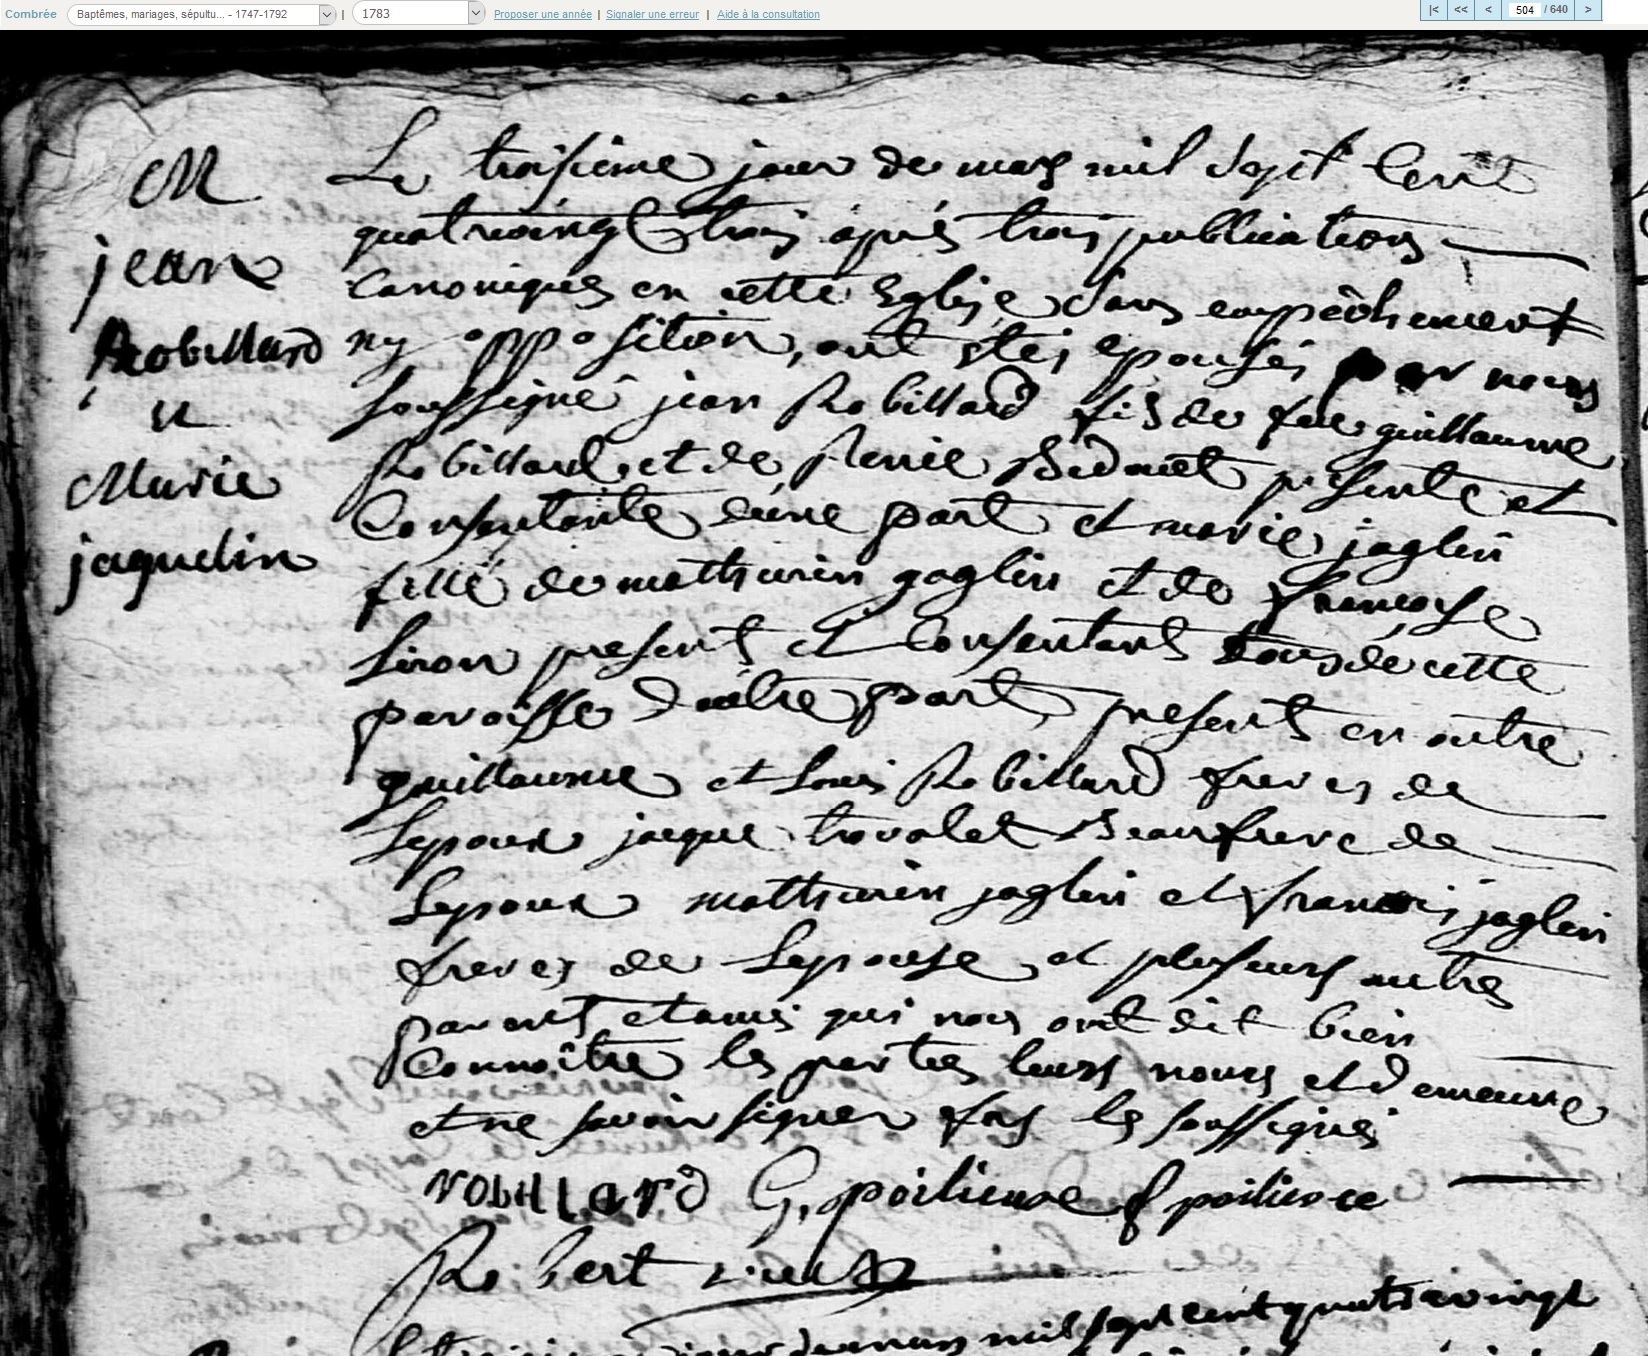 Combrée Baptêmes, mariages, sépultu... - 1747-1792 | 1783 Proposer une année | Signaler une erreur | Aide à la consultation |< << < 504 / 640 >
M
jean
Robillard
u
Marie
jaquelin
Le troisieme jour de mars mil sept Cent
quatrevingt trois après trois publications
Canoniques en cette Eglise Sans empêchement
ny opposition, ont etés epousés par nous
soussigné jean Robillard fils de feu guillaume
Robillard et de Renée presente et
Consentante d'une part et marie jaglin
fille de mathurin jaglin et de francoise
Liron presents et Consentants tous de cette
paroisse d'autre part, presents en outre
guillaume et Louis Robillard freres de
Lepoux jacque Beaufrere de
Lepoux mathurin jaglin et francois jaglin
freres de Lepouse et plusieurs autres
parents et amis qui nous ont dit bien
Connoître les parties leurs noms et demeure
et ne savoir signer fors les soussignés
robillard G, poilievre f poilievre
Robert
mil sept cent quatrevingt